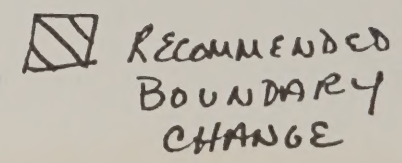 RECOMMENDED
BOUNDARY
CHANGE